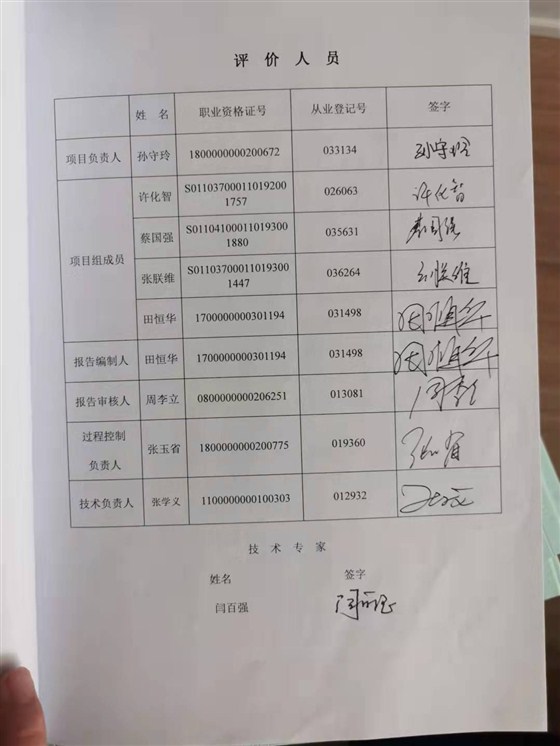 评价人员
姓名 职业资格证号 从业登记号 签字
项目负责人 孙守玲 1800000000200672 033134 孙守玲
项目组成员
许化智 S011037000110192001757 026063 许化智
蔡国强 S011041000110193001880 035631 蔡国强
张朕维 S011037000110193001447 036264
田恒华 1700000000301194 031498 田恒华
报告编制人 田恒华 1700000000301194 031498 田恒华
报告审核人 周李立 0800000000206251 013081
过程控制
负责人 张玉省 1800000000200775 019360
技术负责人 张学义 1100000000100303 012932
技术专家
姓名 签字
闫百强